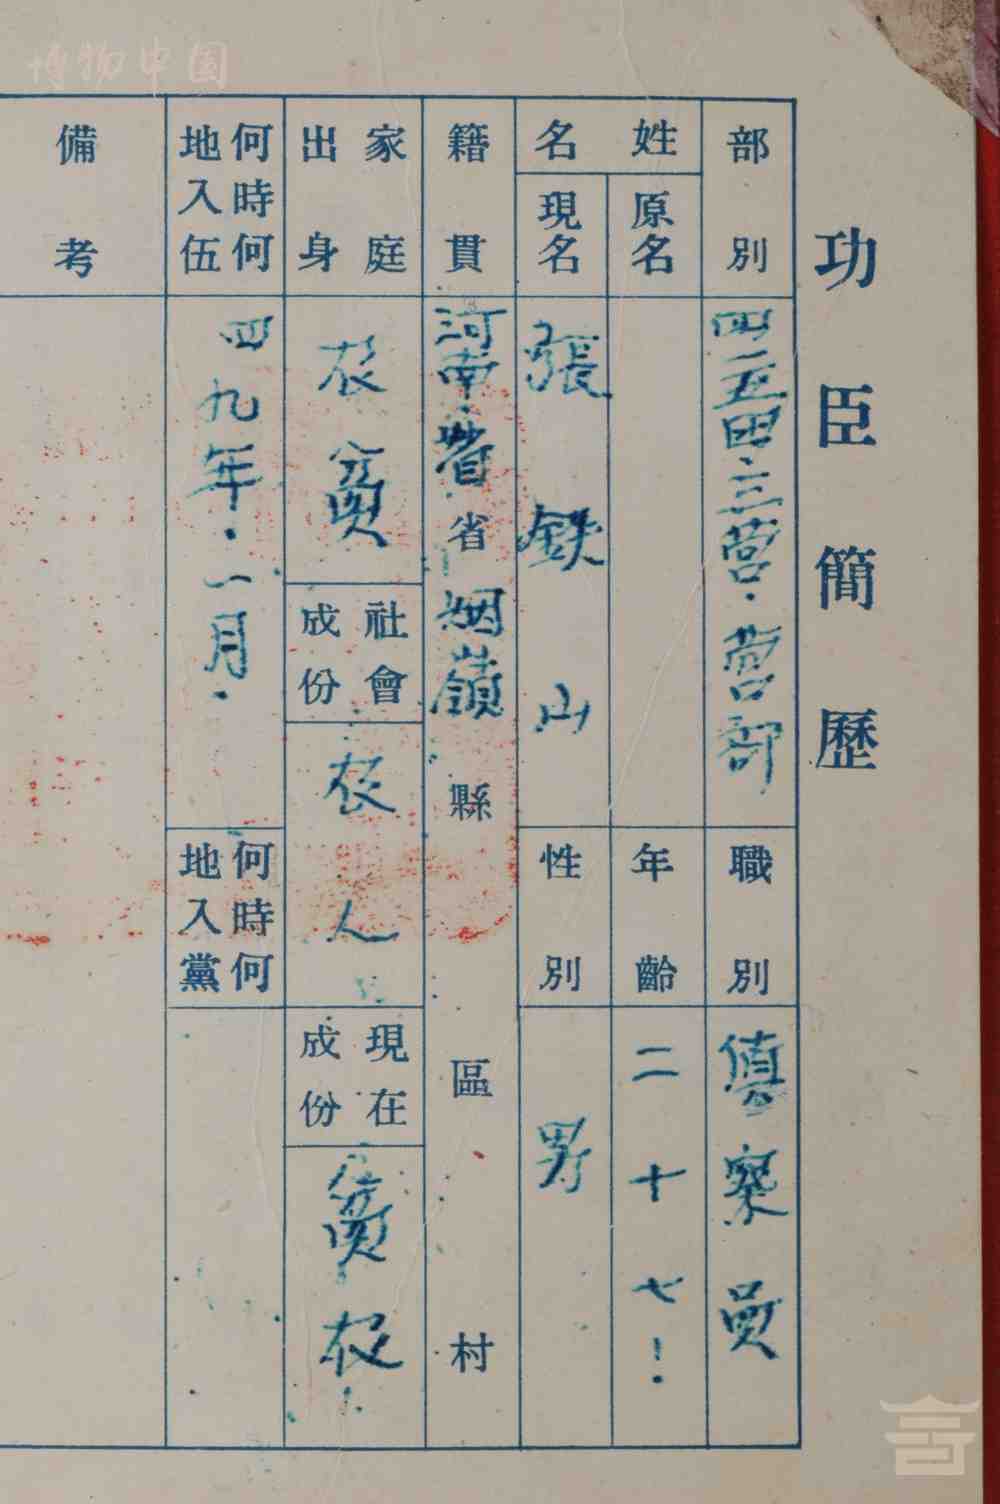 博物中国
功臣簡歷
部別
四五团.三营.营部
職別
偵察員
姓名
原名
年齡
二十七
現名
張鉄山
性別
男
籍貫
河南省省烟嶺縣 區 村
家庭出身
农 貧
社會成份
农人
現在成份
貧 农
何時何地入伍
四九年.一月.
何時何地入黨
備考